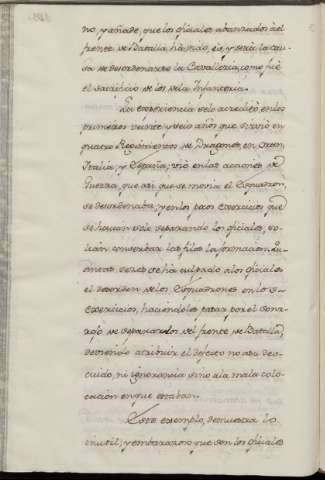 no, y añade, que los oficiales abanzados à el
frente de Batalla, ha sido, es, y será la cau-
sa de desordenarse la Cavallería, como fué
el sacrificio de los de la Infanteria.
La experiencia se lo acreditó en los
primeros veinte y seis años que sirvió en
quatro Regimientos de Dragones, en Oran,
Italia, y España; vió en las acciones de
Guerra, que asi que se movia el Esquadron,
se desordenaba, y en los pocos exercicios que
se hacian vió separando los oficiales,
conservar las filas la formacion.
veces se ha culpado a los oficiales
el desorden de los Esquadrones en los
exercicios, haciendoles pasar por el sonro-
jo de separarlos del frente de Batalla,
deviendo atribuir el defecto no a su des-
cuido, ni ignorancia sino a la mala colo-
cacion en que estaban.
Este exemplo, demuestra lo
inutil, y embarazoso que son los oficiales